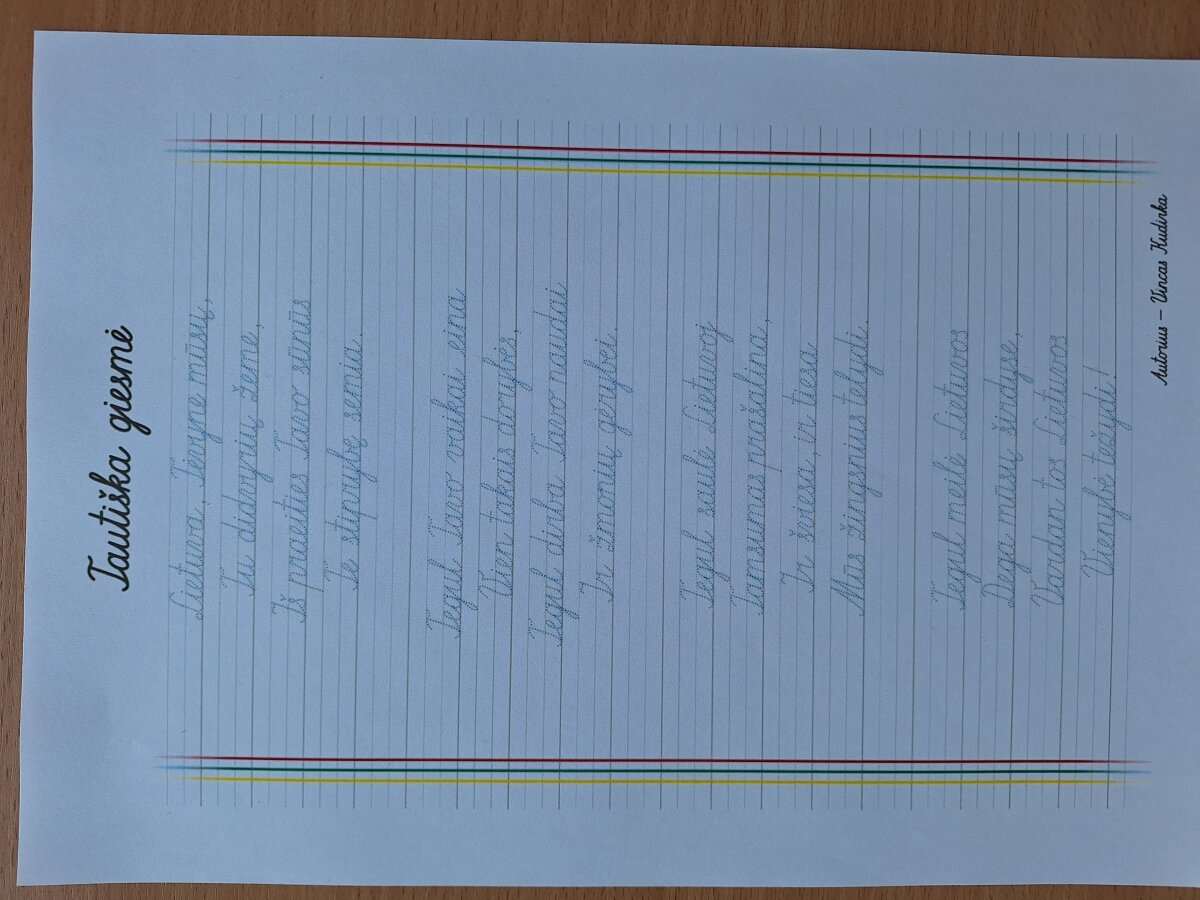 Tautiška giesmė
Lietuva, Tėvyne mūsų,
Tu didvyrių žeme,
Iš praeities Tavo sūnūs
Te stiprybę semia.
Tegul Tavo vaikai eina
Vien takais dorybės,
Tegul dirba Tavo naudai
Ir žmonių gėrybei.
Tegul saulė Lietuvoj
Tamsumas prašalina,
Ir šviesa, ir tiesa
Mūs žingsnius telydi.
Tegul meilė Lietuvos
Dega mūsų širdyse,
Vardan tos Lietuvos
Vienybė težydi!
Autorius – Vincas Kudirka